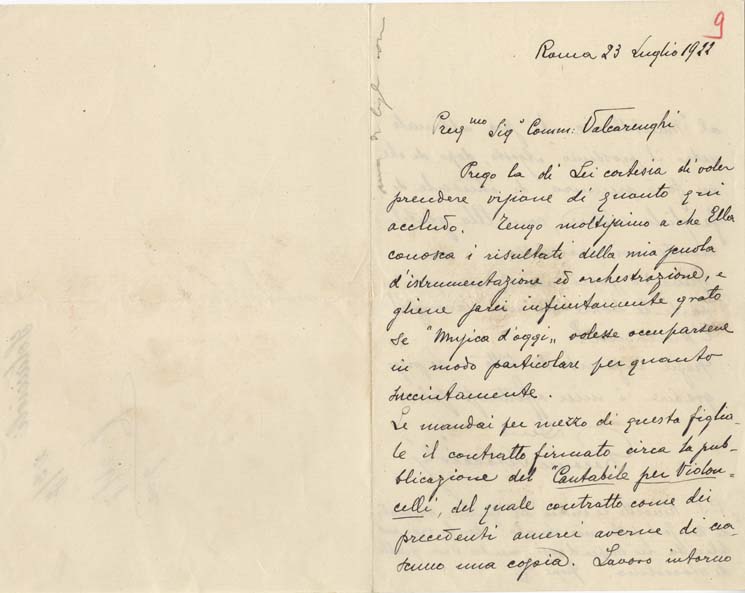 9
Roma 23 Luglio 1922
Preg.mo Sig. Comm: Valcarenghi
Prego la di Lei cortesia di voler
prendere visione di quanto qui
accludo. Tengo moltissimo a che Ella
conosca i risultati della mia scuola
d'istrumentazione ed orchestrazione, e
gliene sarei infinitamente grato
se "Musica d'oggi" volesse occuparsene
in modo particolare per quanto
succintamente.
Le mandai per mezzo di questa figlia-
le il contratto firmato circa la pub-
blicazione del "Cantabile per Violon-
celli", del quale contratto come dei
precedenti amerei averne di cia-
scuno una copia. Lavoro intorno